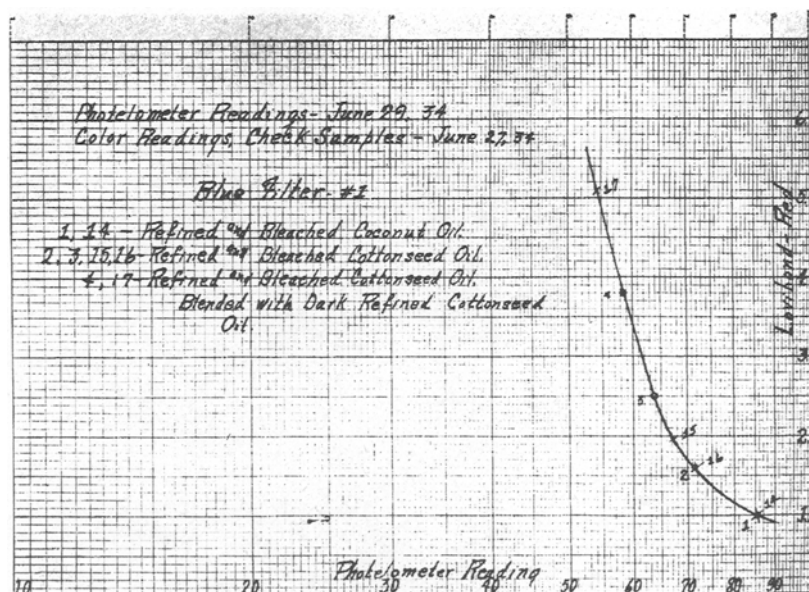 Photelometer Readings - June 29, 34
Color Readings, Check Samples - June 27, 34
Blue Filter - #1
1, 14 - Refined and Bleached Coconut Oil.
2, 3, 15, 16 - Refined and Bleached Cottonseed Oil.
4, 17 - Refined and Bleached Cottonseed Oil.
Blended with Dark Refined Cottonseed
Oil.
6
5
4
3
2
1
Lovibond - Red
17
4
3
15
16
2
14
1
10
20
30
40
50
60
70
80
90
Photelometer Reading